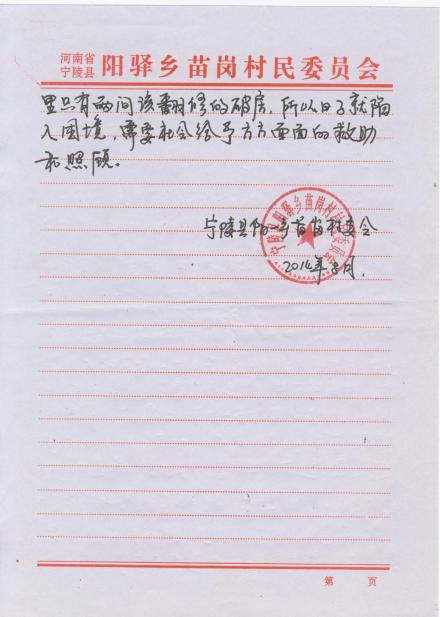 河南省
宁陵县 阳驿乡苗岗村民委员会
里只有两间该翻修的破房,所以日子就陷
入困境,需要社会给予方方面面的救助
和照顾。
宁陵县阳驿乡苗岗村委会
2014年3月.
第 页